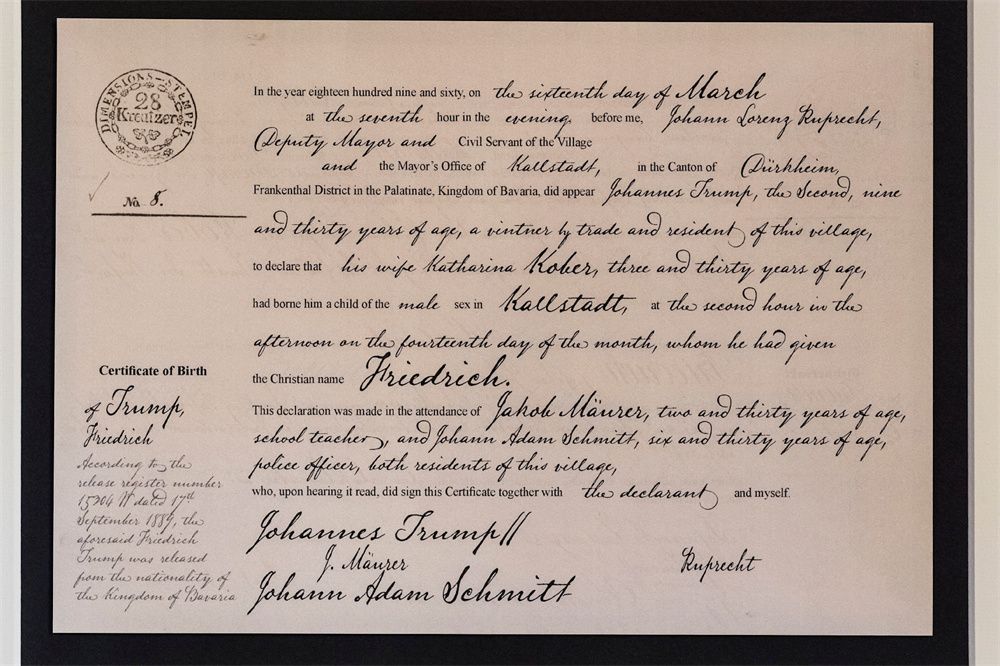 DIMENSIONS-STEMPEL
28
Kreutzer
No. 8.
In the year eighteen hundred nine and sixty, on the sixteenth day of March
at the seventh hour in the evening before me, Johann Lorenz Ruprecht,
Deputy Mayor and Civil Servant of the Village
and the Mayor's Office of Kallstadt, in the Canton of Dürkheim,
Frankenthal District in the Palatinate, Kingdom of Bavaria, did appear Johannes Trump, the Second, nine
and thirty years of age, a vintner by trade and resident of this village,
to declare that his wife Katharina Kober, three and thirty years of age,
had borne him a child of the male sex in Kallstadt, at the second hour in the
afternoon on the fourteenth day of the month, whom he had given
the Christian name Friedrich.
This declaration was made in the attendance of Jakob Mäurer, two and thirty years of age,
school teacher, and Johann Adam Schmitt, six and thirty years of age,
police officer, both residents of this village,
who, upon hearing it read, did sign this Certificate together with the declarant and myself.
Johannes Trump II
J. Mäurer
Ruprecht
Johann Adam Schmitt
Certificate of Birth
of Trump,
Friedrich
According to the
release register number
dated 17th
September 1889, the
aforesaid Friedrich
Trump was released
from the nationality of
the Kingdom of Bavaria